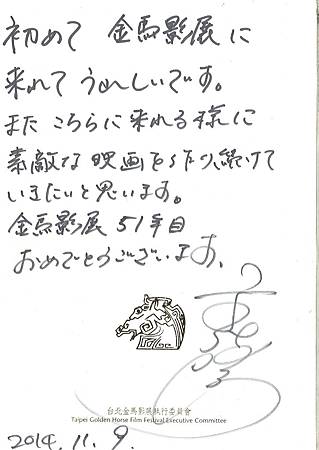 初めて 金馬影展に
来れて うれしいです。
また こちらに来れる様に
素敵な 映画を 作り続けて
いきたいと思います。
金馬影展 51年目
おめでとうございます、
台北金馬影展執行委員會
Taipei Golden Horse Film Festival Executive Committee
2014.11.9.